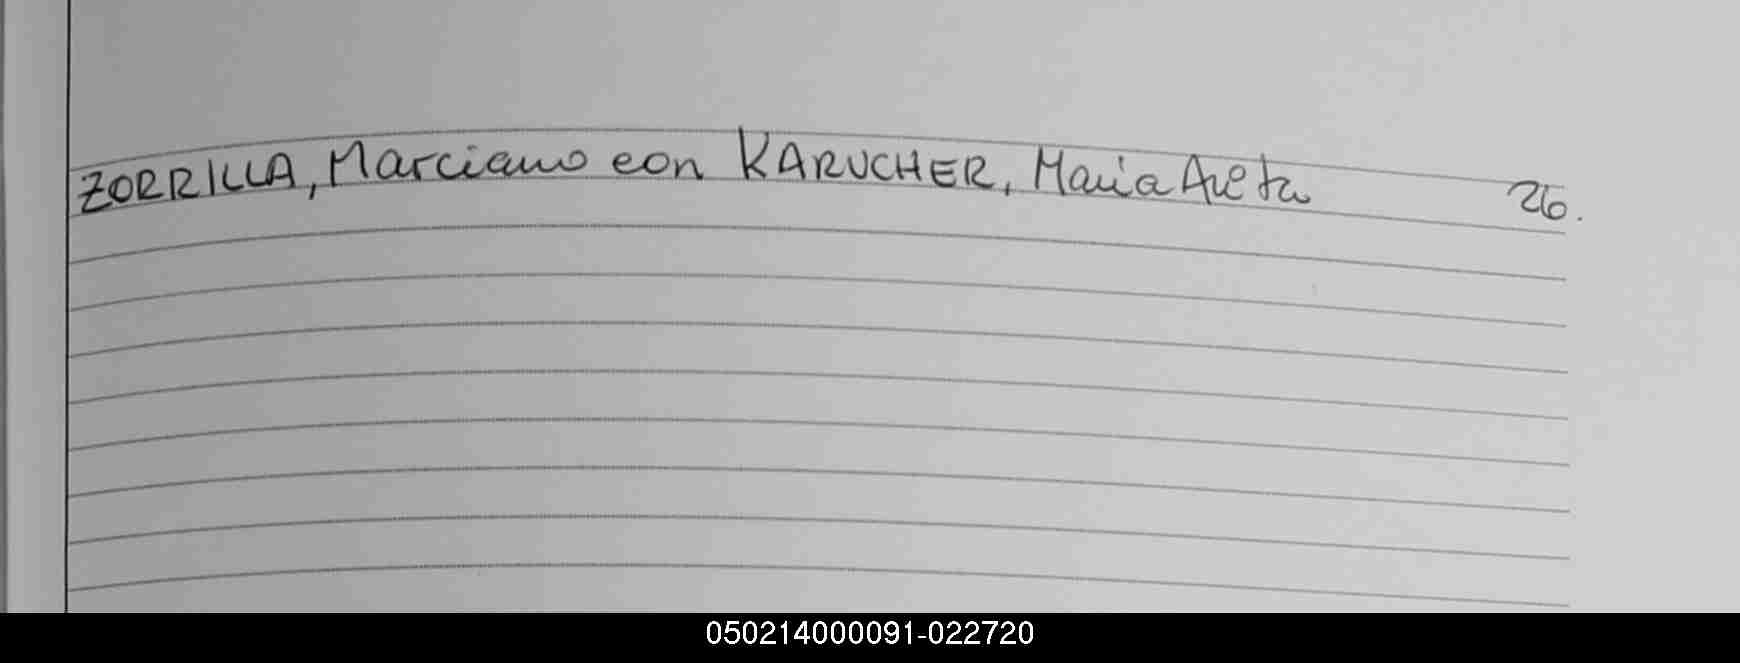 ZORRILLA, Marciano con KARUCHER, Maria 26.
050214000091-022720